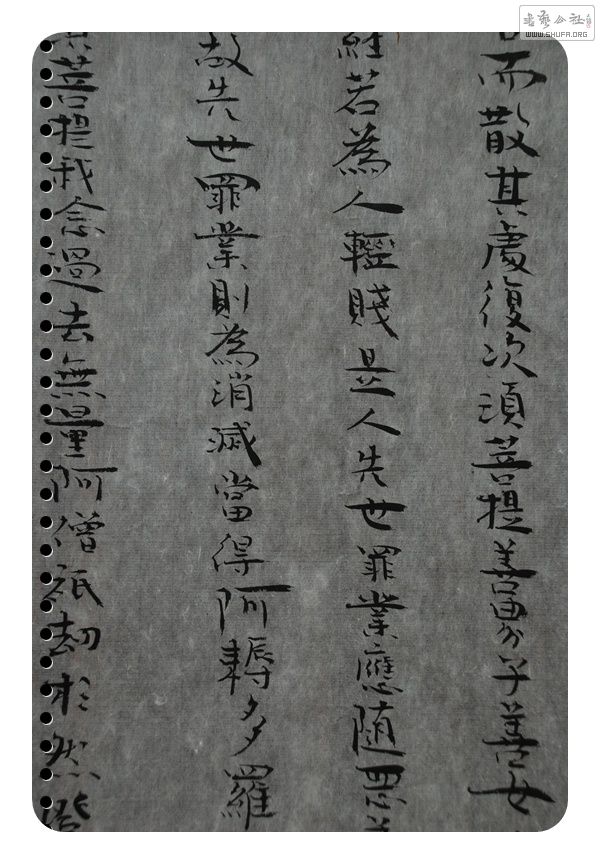 書藝公社
WWW.SHUFA.ORG
而散其處復次須菩提善男子善女
經若為人輕賤是人先世罪業應隨惡
故先世罪業則為消滅當得阿耨多羅
菩提我念過去無量阿僧祇劫於然燈